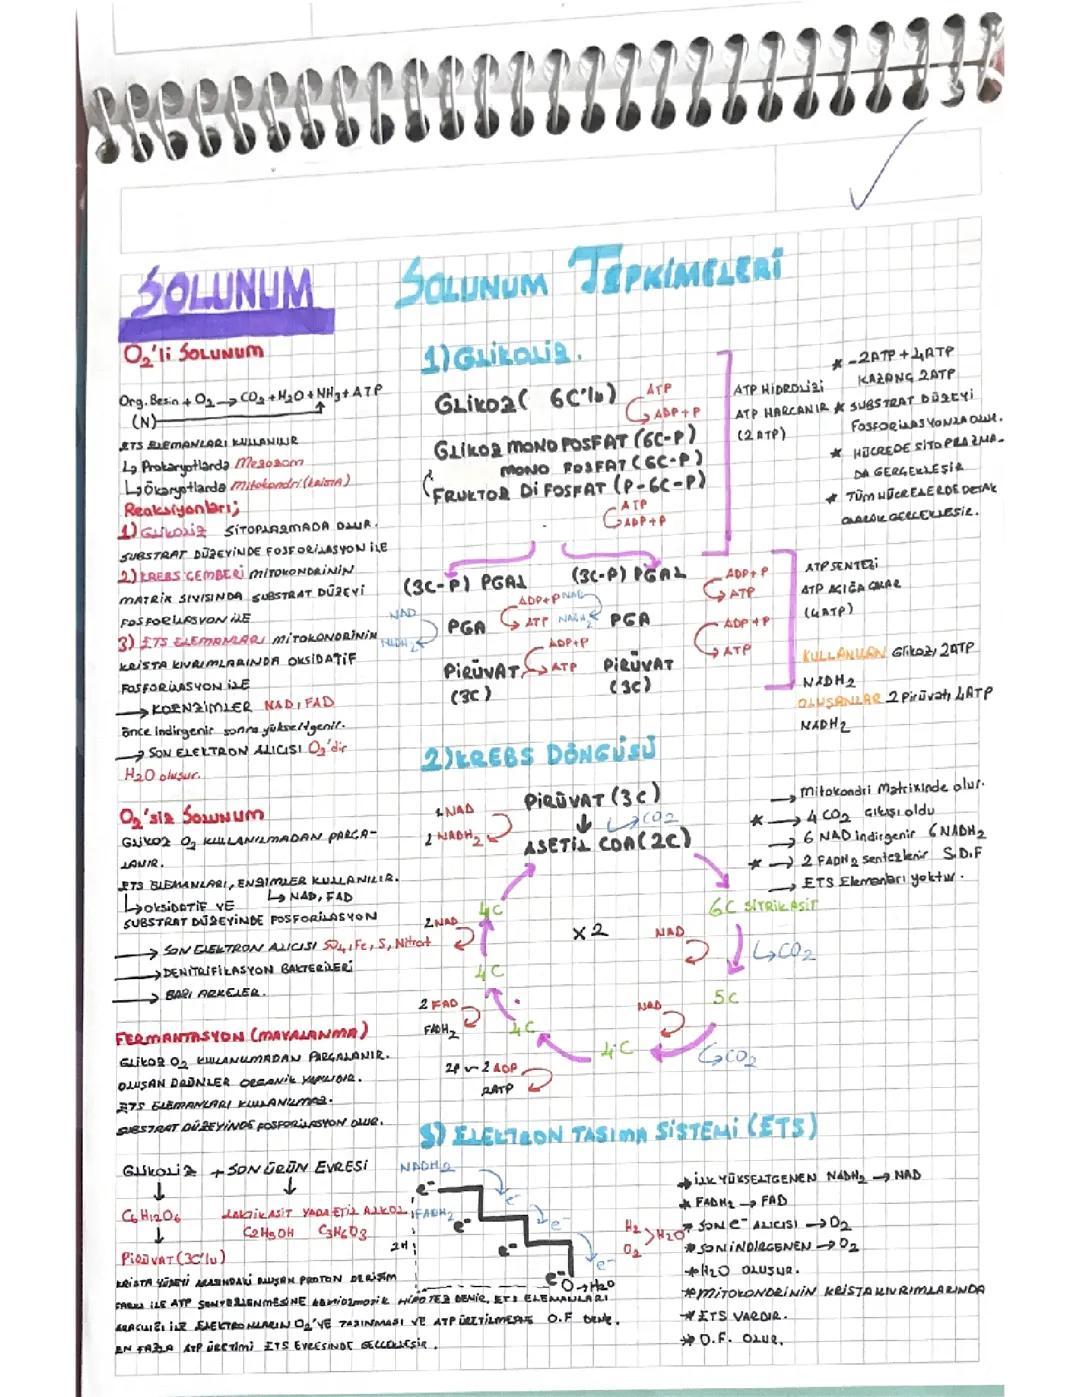 SOLUNUM
SOLUNUM TEPKİMELERİ
O₂'li SOLUNUM
Org. Besin + O₂ → CO₂ + H₂O + NH₃ + ATP
(N)
ETS ELEMANLARI KULLANILIR
↳ Prokaryotlarda Mezozom
↳ Ökaryotlarda Mitokondri (krista)
Reaksiyonları;
1) GLİKOLİZ SİTOPLAZMADA OLUR.
SUBSTRAT DÜZEYİNDE FOSFORİLASYON İLE
2) KREBS ÇEMBERİ MİTOKONDRİNİN
MATRİK SIVISINDA SUBSTRAT DÜZEYİ
FOSFORİLASYON İLE
3) ETS ELEMANLARI MİTOKONDRİNİN
KRİSTA KIVRIMLARINDA OKSİDATİF
FOSFORİLASYON İLE
→ KOENZİMLER NAD, FAD
önce indirgenir sonra yükseltgenir.
→ SON ELEKTRON ALICISI O₂'dir
H₂O oluşur.
O₂'siz SOLUNUM
GLİKOZ O₂ KULLANILMADAN PARÇA-
LANIR.
ETS ELEMANLARI, ENZİMLER KULLANILIR.
↳ OKSİDATİF VE ↳ NAD, FAD
SUBSTRAT DÜZEYİNDE FOSFORİLASYON
→ SON ELEKTRON ALICISI SO₄, Fe, S, Nitrat
→ DENİTRİFİKASYON BAKTERİLERİ
→ BAZI ARKELER.
FERMANTASYON (MAYALANMA)
GLİKOZ O₂ KULLANILMADAN PARÇALANIR.
OLUŞAN ÜRÜNLER ORGANİK YAPILIDIR.
ETS ELEMANLARI KULLANILMAZ.
SUBSTRAT DÜZEYİNDE FOSFORİLASYON OLUR.
GLİKOLİZ + SON ÜRÜN EVRESİ
↓ ↓
C₆H₁₂O₆ LAKTİK ASİT YADA ETİL ALKOL
↓ C₂H₅OH C₃H₆O₃
PİRÜVAT (3C'lu)
1) GLİKOLİZ.
GLİKOZ (6C'lu) ATP
ADP+P
GLİKOZ MONO FOSFAT (6C-P)
MONO FOSFAT (6C-P)
FRUKTOZ Dİ FOSFAT (P-6C-P)
ATP
ADP+P
(3C-P) PGAL (3C-P) PGAL
NAD ADP+P NAD ADP+P
NADH₂ PGA ATP NADH₂ PGA ATP
ADP+P ADP+P
PİRÜVAT ATP PİRÜVAT ATP
(3C) (3C)
ATP HİDROLİZİ
ATP HARCANIR
(2 ATP)
* -2ATP + 4ATP
KAZANÇ 2ATP
* SUBSTRAT DÜZEYİ
FOSFORİLASYONLA OLUR.
* HÜCREDE SİTOPLAZMA-
DA GERÇEKLEŞİR
* TÜM HÜCRELERDE ORTAK
OLARAK GERÇEKLEŞİR.
ATP SENTEZİ
ATP AÇIĞA ÇIKAR
(4ATP)
KULLANILAN Glikoz, 2ATP
NADH₂
OLUŞANLAR 2 Pirüvat, 4ATP
NADH₂
2) KREBS DÖNGÜSÜ
PİRÜVAT (3C)
1 NAD ↓ CO₂
1 NADH₂ ASETİL COA (2C)
4C 6C SİTRİK ASİT
2 NAD X2 NAD CO₂
4C 5C
2 FAD NAD
FADH₂ 4C 4C CO₂
2P ~ 2 ADP
2ATP
→ Mitokondri Matrixinde olur.
* → 4 CO₂ Çıkışı oldu
→ 6 NAD indirgenir 6 NADH₂
* → 2 FADH₂ sentezlenir S.D.F
→ ETS Elemanları yoktur.
3) ELEKTRON TAŞIMA SİSTEMİ (ETS)
NADH₂
e⁻ e⁻
FADH₂ e⁻ e⁻
2H e⁻ e⁻
e⁻ O → H₂O
H₂
O₂ > H₂O
* İLK YÜKSELTGENEN NADH₂ → NAD
* FADH₂ → FAD
* SON e⁻ ALICISI → O₂
* SON İNDİRGENEN → O₂
* H₂O OLUŞUR.
* MİTOKONDRİNİN KRİSTA KIVRIMLARINDA
* ETS VARDIR.
* O.F. OLUR.
KRİSTA YÜZEYİ ARASINDAKİ OLUŞAN PROTON DERİŞİM
FARKI İLE ATP SENTEZLENMESİNE kemiozmotik HİPOTEZ DENİR. ETS ELEMANLARI
ARACILIĞI İLE ELEKTRONLARIN O₂'YE TAŞINMASI VE ATP ÜRETİLMESİNE O.F DENİR.
EN FAZLA ATP ÜRETİMİ ETS EVRESİNDE GERÇEKLEŞİR.